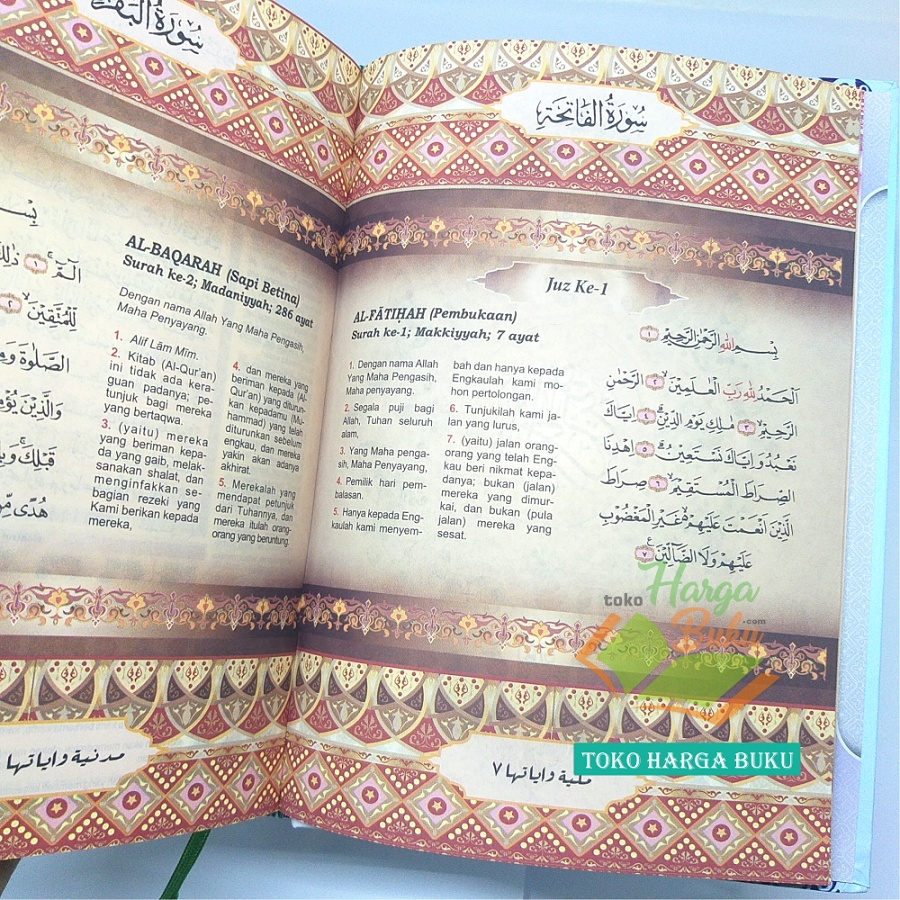 سُورَةُ الفَاتِحَةِ
Juz Ke-1
AL-FĀTIḤAH (Pembukaan)
Surah ke-1; Makkiyyah; 7 ayat
1. Dengan nama Allah
Yang Maha Pengasih,
Maha penyayang.
2. Segala puji bagi
Allah, Tuhan seluruh
alam,
3. Yang Maha penga-
sih, Maha Penyayang,
4. Pemilik hari pem-
balasan.
5. Hanya kepada Eng-
kaulah kami menyem-
bah dan hanya kepada
Engkaulah kami mo-
hon pertolongan.
6. Tunjukilah kami ja-
lan yang lurus,
7. (yaitu) jalan orang-
orang yang telah Eng-
kau beri nikmat kepa-
danya; bukan (jalan)
mereka yang dimur-
kai, dan bukan (pula
jalan) mereka yang
sesat.
بِسْمِ اللّٰهِ الرَّحْمٰنِ الرَّحِيْمِ ١
اَلْحَمْدُ لِلّٰهِ رَبِّ الْعٰلَمِيْنَۙ ٢ الرَّحْمٰنِ
الرَّحِيْمِۙ ٣ مٰلِكِ يَوْمِ الدِّيْنِۗ ٤ اِيَّاكَ
نَعْبُدُ وَاِيَّاكَ نَسْتَعِيْنُۗ ٥ اِهْدِنَا
الصِّرَاطَ الْمُسْتَقِيْمَۙ ٦ صِرَاطَ
الَّذِيْنَ اَنْعَمْتَ عَلَيْهِمْ ەۙ غَيْرِ الْمَغْضُوْبِ
عَلَيْهِمْ وَلَا الضَّاۤلِّيْنَࣖ ٧
مكية واياتها ٧
سُورَةُ
AL-BAQARAH (Sapi Betina)
Surah ke-2; Madaniyyah; 286 ayat
Dengan nama Allah Yang Maha Pengasih,
Maha Penyayang.
1. Alif Lām Mīm.
2. Kitab (Al-Qur'an)
ini tidak ada kera-
guan padanya; pe-
tunjuk bagi mereka
yang bertaqwa.
3. (yaitu) mereka
yang beriman kepa-
da yang gaib, melak-
sanakan shalat, dan
menginfakkan se-
bagian rezeki yang
Kami berikan kepada
mereka,
4. dan mereka yang
beriman kepada (Al-
Qur'an) yang diturun-
kan kepadamu (Mu-
hammad) yang telah
diturunkan sebelum
engkau, dan mereka
yakin akan adanya
akhirat.
5. Merekalah yang
mendapat petunjuk
dari Tuhannya, dan
mereka itulah orang-
orang yang beruntung.
الۤمّۤ ۚ ١ ذٰلِكَ
لِّلْمُتَّقِيْنَۙ ٢
الصَّلٰوةَ
وَالَّذِيْنَ
قَبْلِكَ
هُدًى مِّنْ
مدنية واياتها
toko Harga
Buku .com
TOKO HARGA BUKU